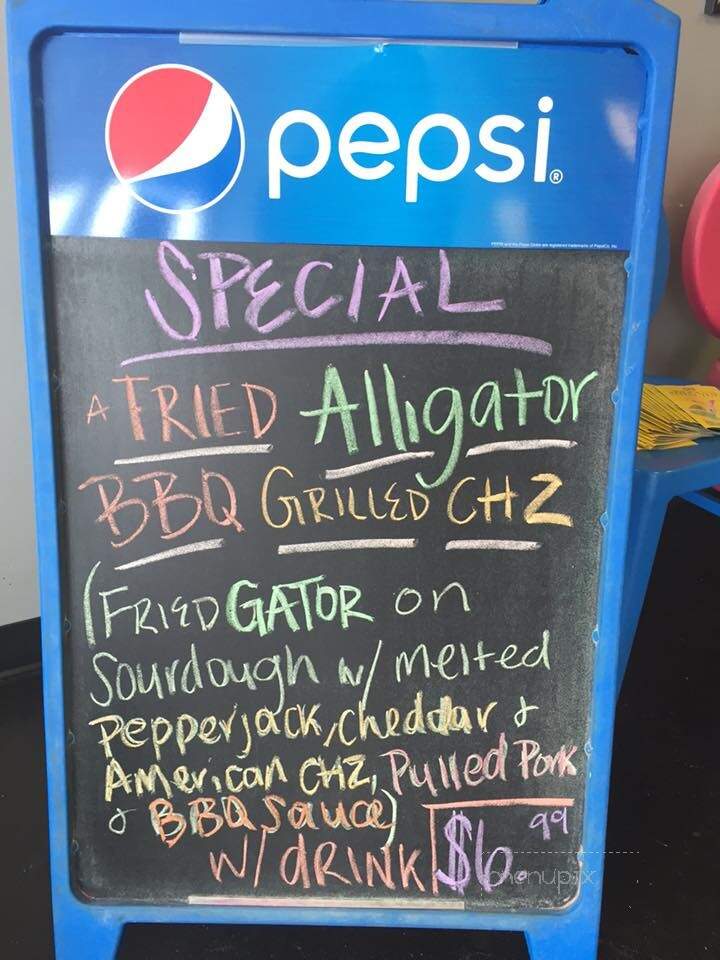 pepsi®
SPECIAL
A FRIED Alligator
BBQ GRILLED CHZ
(FRIED GATOR on
Sourdough w/ melted
pepperjack, cheddar &
American CHZ, Pulled Pork
& BBQ Sauce)
w/ DRINK $6.99
menupix